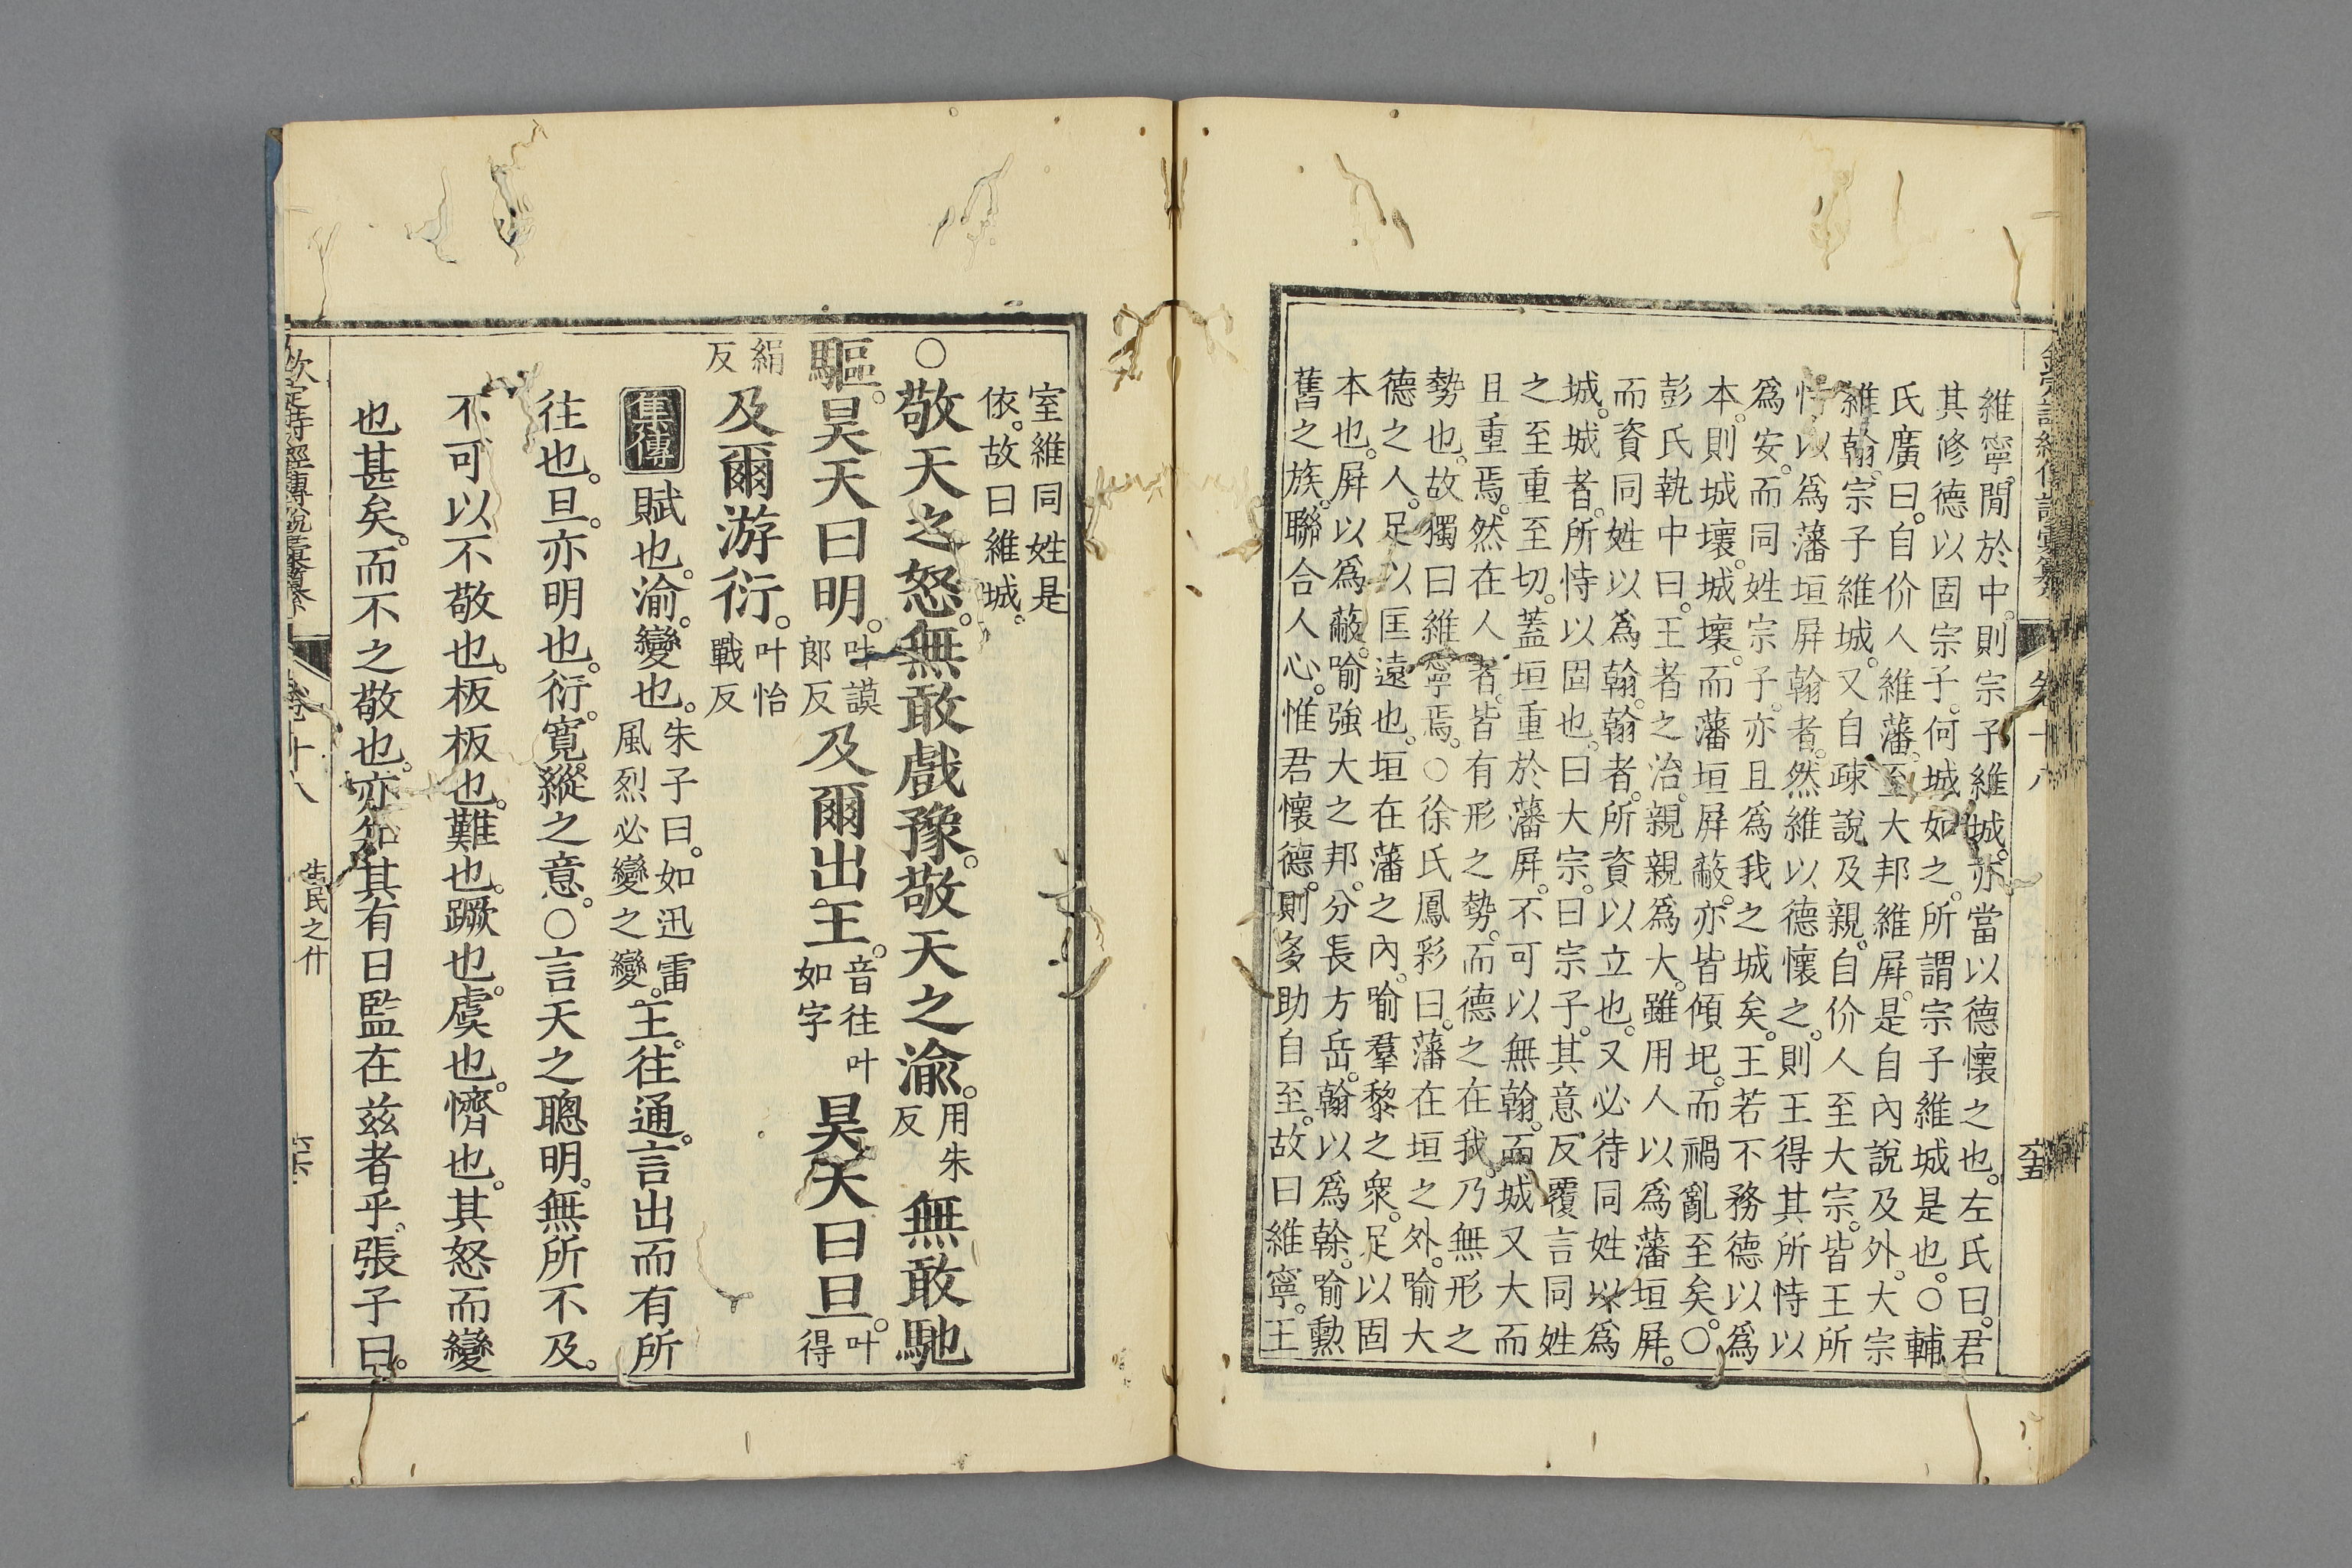 維寧。閒於中。則宗子維城。亦當以德懷之也。左氏曰。君
其修德以固宗子。何城如之。所謂宗子維城是也。○輔
氏廣曰。自价人維藩。至大邦維屏。是自內說及外。大宗
維翰。宗子維城。又自疎說及親。自价人至大宗。皆王所
恃以爲藩垣屏翰者。然維以德懷之。則王得其所恃以
爲安。而同姓宗子。亦且爲我之城矣。王若不務德以爲
本。則城壞。城壞。而藩垣屏蔽。亦皆傾圯。而禍亂至矣。○
彭氏執中曰。王者之治。親親爲大。雖用人以爲藩垣屏。
而資同姓以爲翰。翰者。所資以立也。又必待同姓以爲
城。城者。所恃以固也。曰大宗。曰宗子。其意反覆言同姓
之至重至切。蓋垣重於藩屏。不可以無翰。而城又大而
且重焉。然在人者。皆有形之勢。而德之在我。乃無形之
勢也。故獨曰維寧焉。○徐氏鳳彩曰。藩在垣之外。喻大
德之人。足以匡遠也。垣在藩之內。喻羣黎之衆。足以固
本也。屏以爲蔽。喻強大之邦。分長方岳。翰以爲榦。喻勳
舊之族。聯合人心。惟君懷德。則多助自至。故曰維寧。王
卷十八
六十五
室維同姓是
依。故曰維城。
○敬天之怒。無敢戲豫。敬天之渝。用朱反無敢馳
驅。昊天曰明。叶謨郎反及爾出王。音往叶如字昊天曰旦。叶得
絹反及爾游衍。叶怡戰反
集傳 賦也。渝。變也。朱子曰。如迅雷風烈必變之變。王。往。通。言出而有所
往也。旦。亦明也。衍。寬縱之意。○言天之聰明。無所不及。
不可以不敬也。板板也。難也。蹶也。虐也。懠也。其怒而變
也甚矣。而不之敬也。亦知其有日監在茲者乎。張子曰。
欽定詩經傳說彙纂
卷十八
生民之什